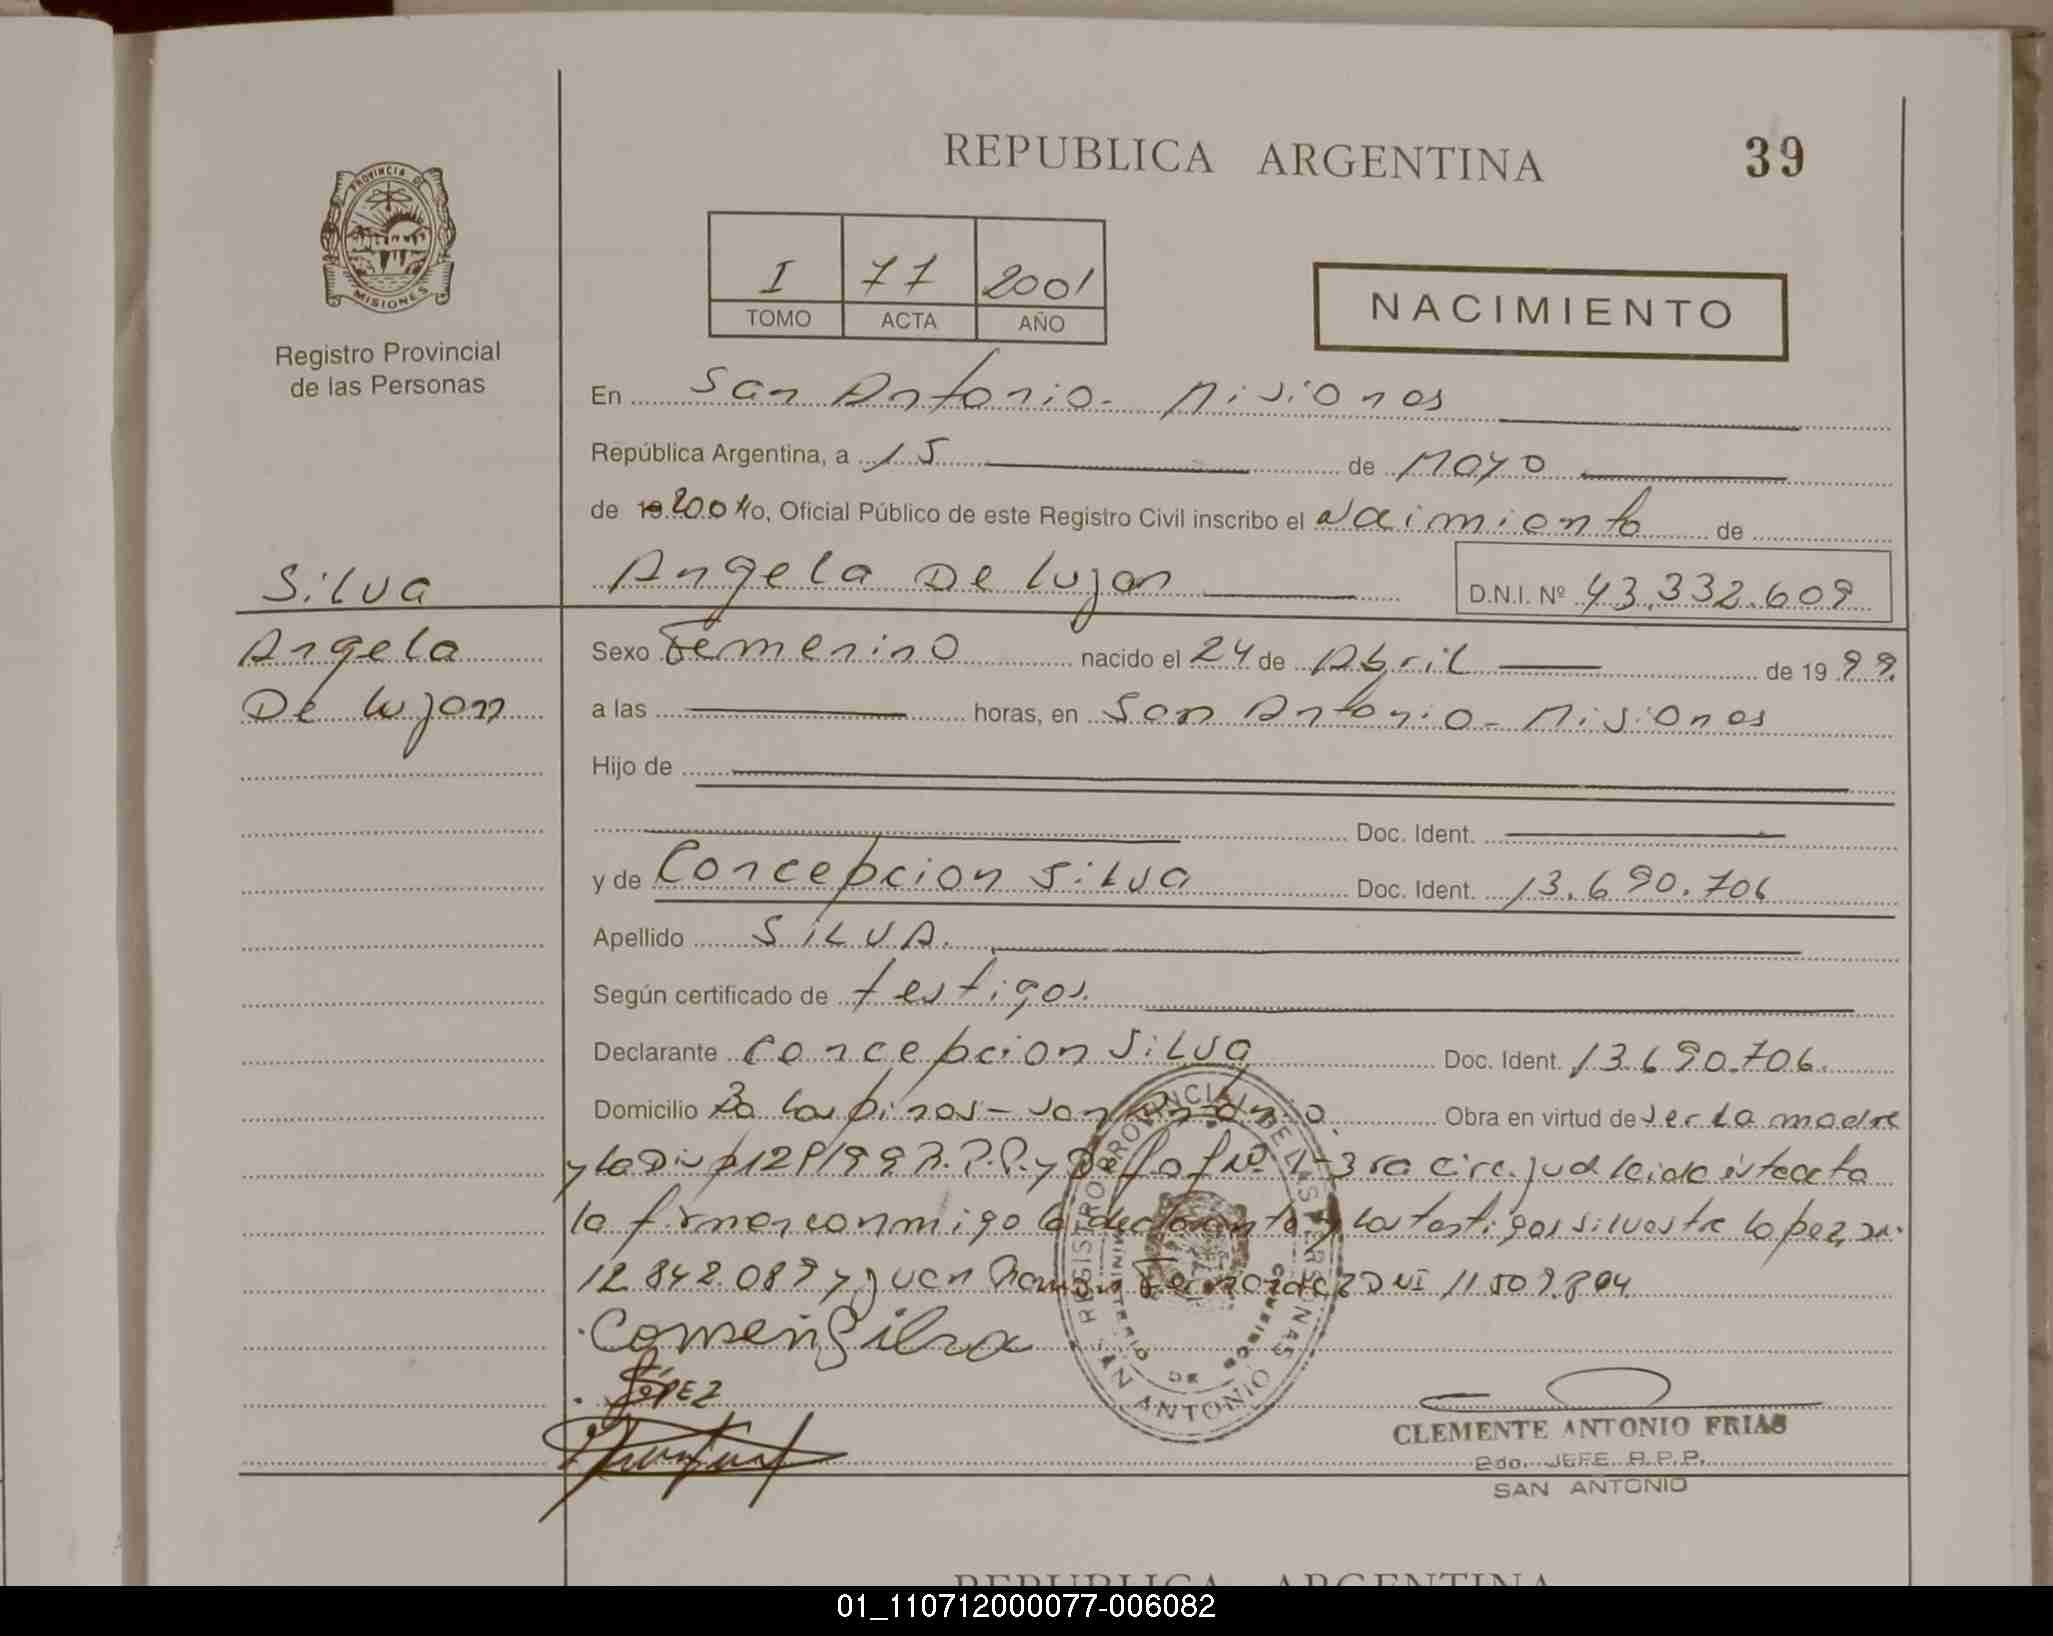 REPUBLICA ARGENTINA
39
PROVINCIA DE
MISIONES
Registro Provincial
de las Personas
I 77 2001
TOMO ACTA AÑO
NACIMIENTO
En San Antonio - Misiones
República Argentina, a 15 de Mayo
de 19 2001 Yo, Oficial Público de este Registro Civil inscribo el Nacimiento de
Silva
Angela De Lujan
D.N.I. Nº 43.332.609
Angela
De Lujan
Sexo Femenino nacido el 24 de Abril de 19 99.
a las horas, en San Antonio - Misiones
Hijo de
Doc. Ident.
y de Concepcion Silva Doc. Ident. 13.690.706
Apellido SILVA.
Según certificado de testigos.
Declarante Concepcion Silva Doc. Ident. 13.690.706.
Domicilio Bo Los pinos - San Antonio. Obra en virtud de ser la madre
y la R.P.P. y Nº 1 - 3 ra circ. jud leida acta
la firman conmigo la declarante y los testigos Silvestre Lopez
12.842.089 y Juan Ramon Fernandez DNI 11.509.804
Silva
LOPEZ
REGISTRO PROVINCIAL DE LAS PERSONAS
MINISTERIO DE GOBIERNO
SAN ANTONIO
CLEMENTE ANTONIO FRIAS
2do. JEFE R.P.P.
SAN ANTONIO
REPUBLICA ARGENTINA
01_110712000077-006082